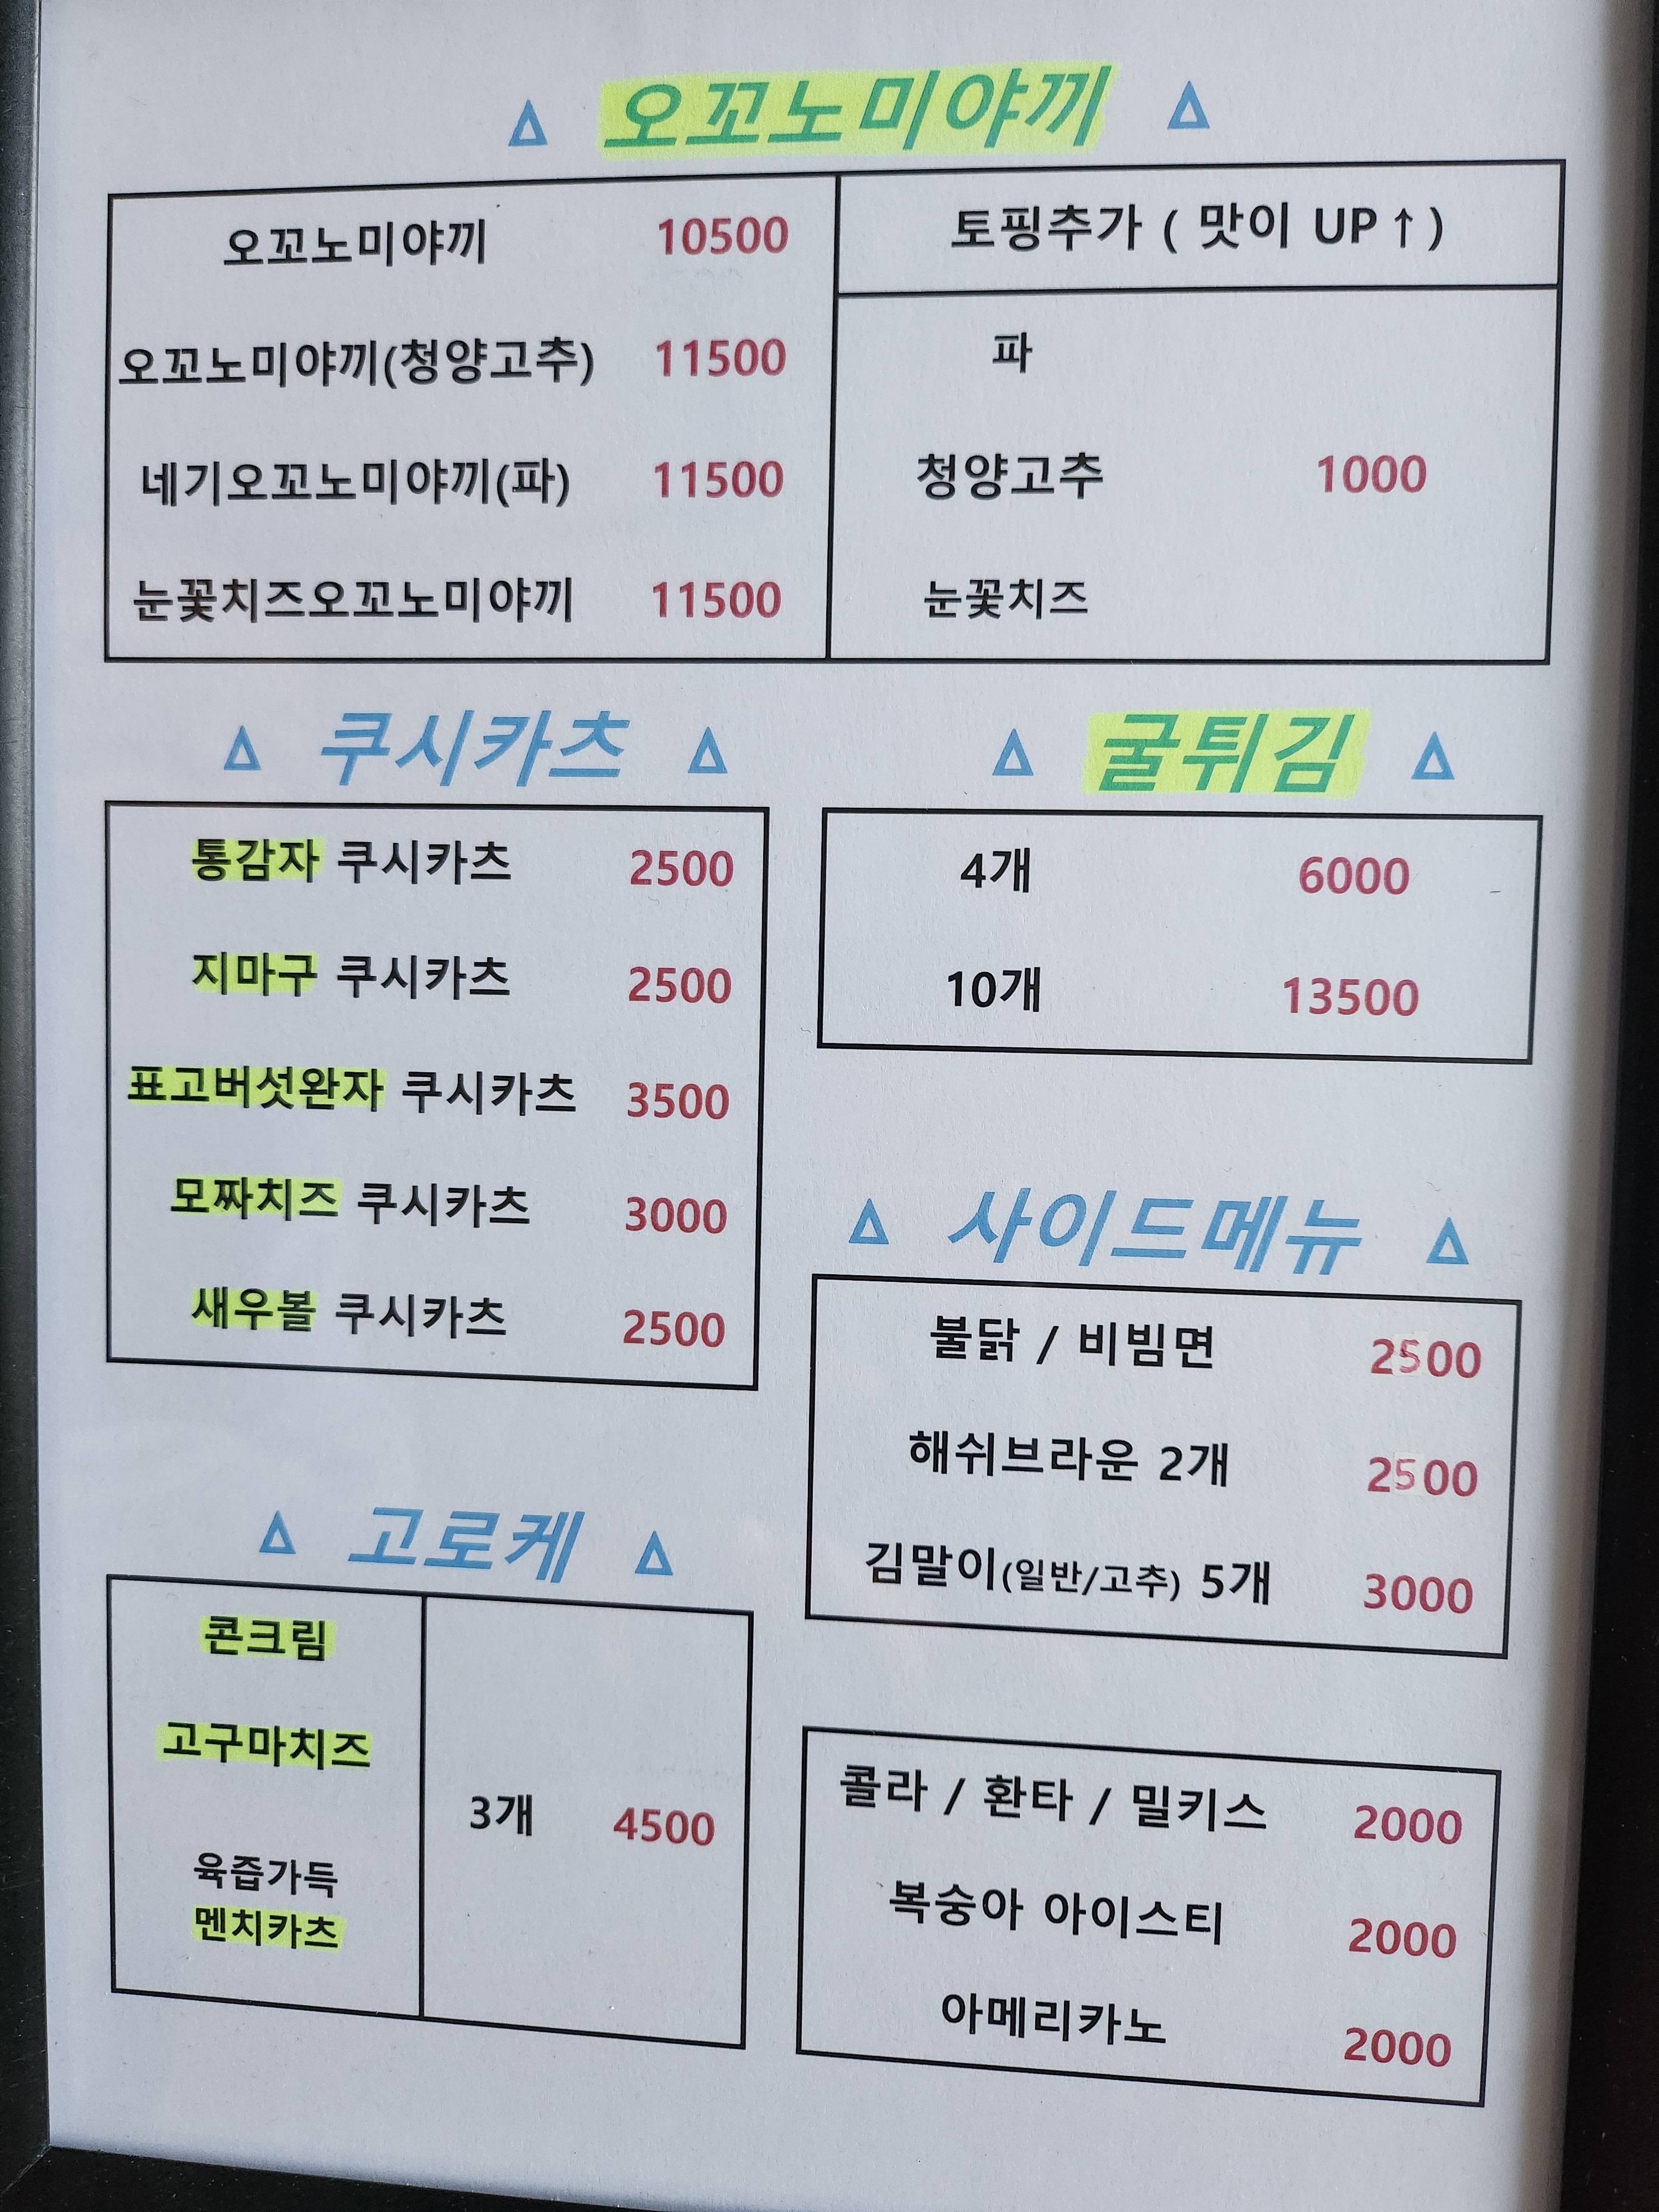 △ 오꼬노미야끼 △
오꼬노미야끼 10500
오꼬노미야끼(청양고추) 11500
네기오꼬노미야끼(파) 11500
눈꽃치즈오꼬노미야끼 11500
토핑추가 ( 맛이 UP↑)
파
청양고추 1000
눈꽃치즈
△ 쿠시카츠 △
통감자 쿠시카츠 2500
지마구 쿠시카츠 2500
표고버섯완자 쿠시카츠 3500
모짜치즈 쿠시카츠 3000
새우볼 쿠시카츠 2500
△ 굴튀김 △
4개 6000
10개 13500
△ 사이드메뉴 △
불닭 / 비빔면 2500
해쉬브라운 2개 2500
김말이(일반/고추) 5개 3000
△ 고로케 △
콘크림
고구마치즈
육즙가득
멘치카츠
3개 4500
콜라 / 환타 / 밀키스 2000
복숭아 아이스티 2000
아메리카노 2000